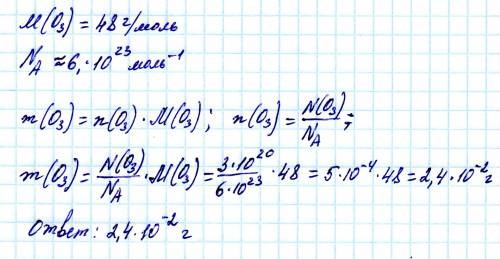 M(O₃) = 48 г/моль
N_A ≈ 6,·10²³ моль⁻¹
m(O₃) = n(O₃) · M(O₃); n(O₃) = N(O₃)/N_A;
m(O₃) = N(O₃)/N_A · M(O₃) = 3·10²⁰/6·10²³ · 48 = 5·10⁻⁴ · 48 = 2,4·10⁻² г
Ответ: 2,4·10⁻² г